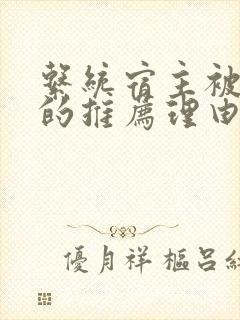 繫統宿主被
的推薦理由
優月祥樞呂紅